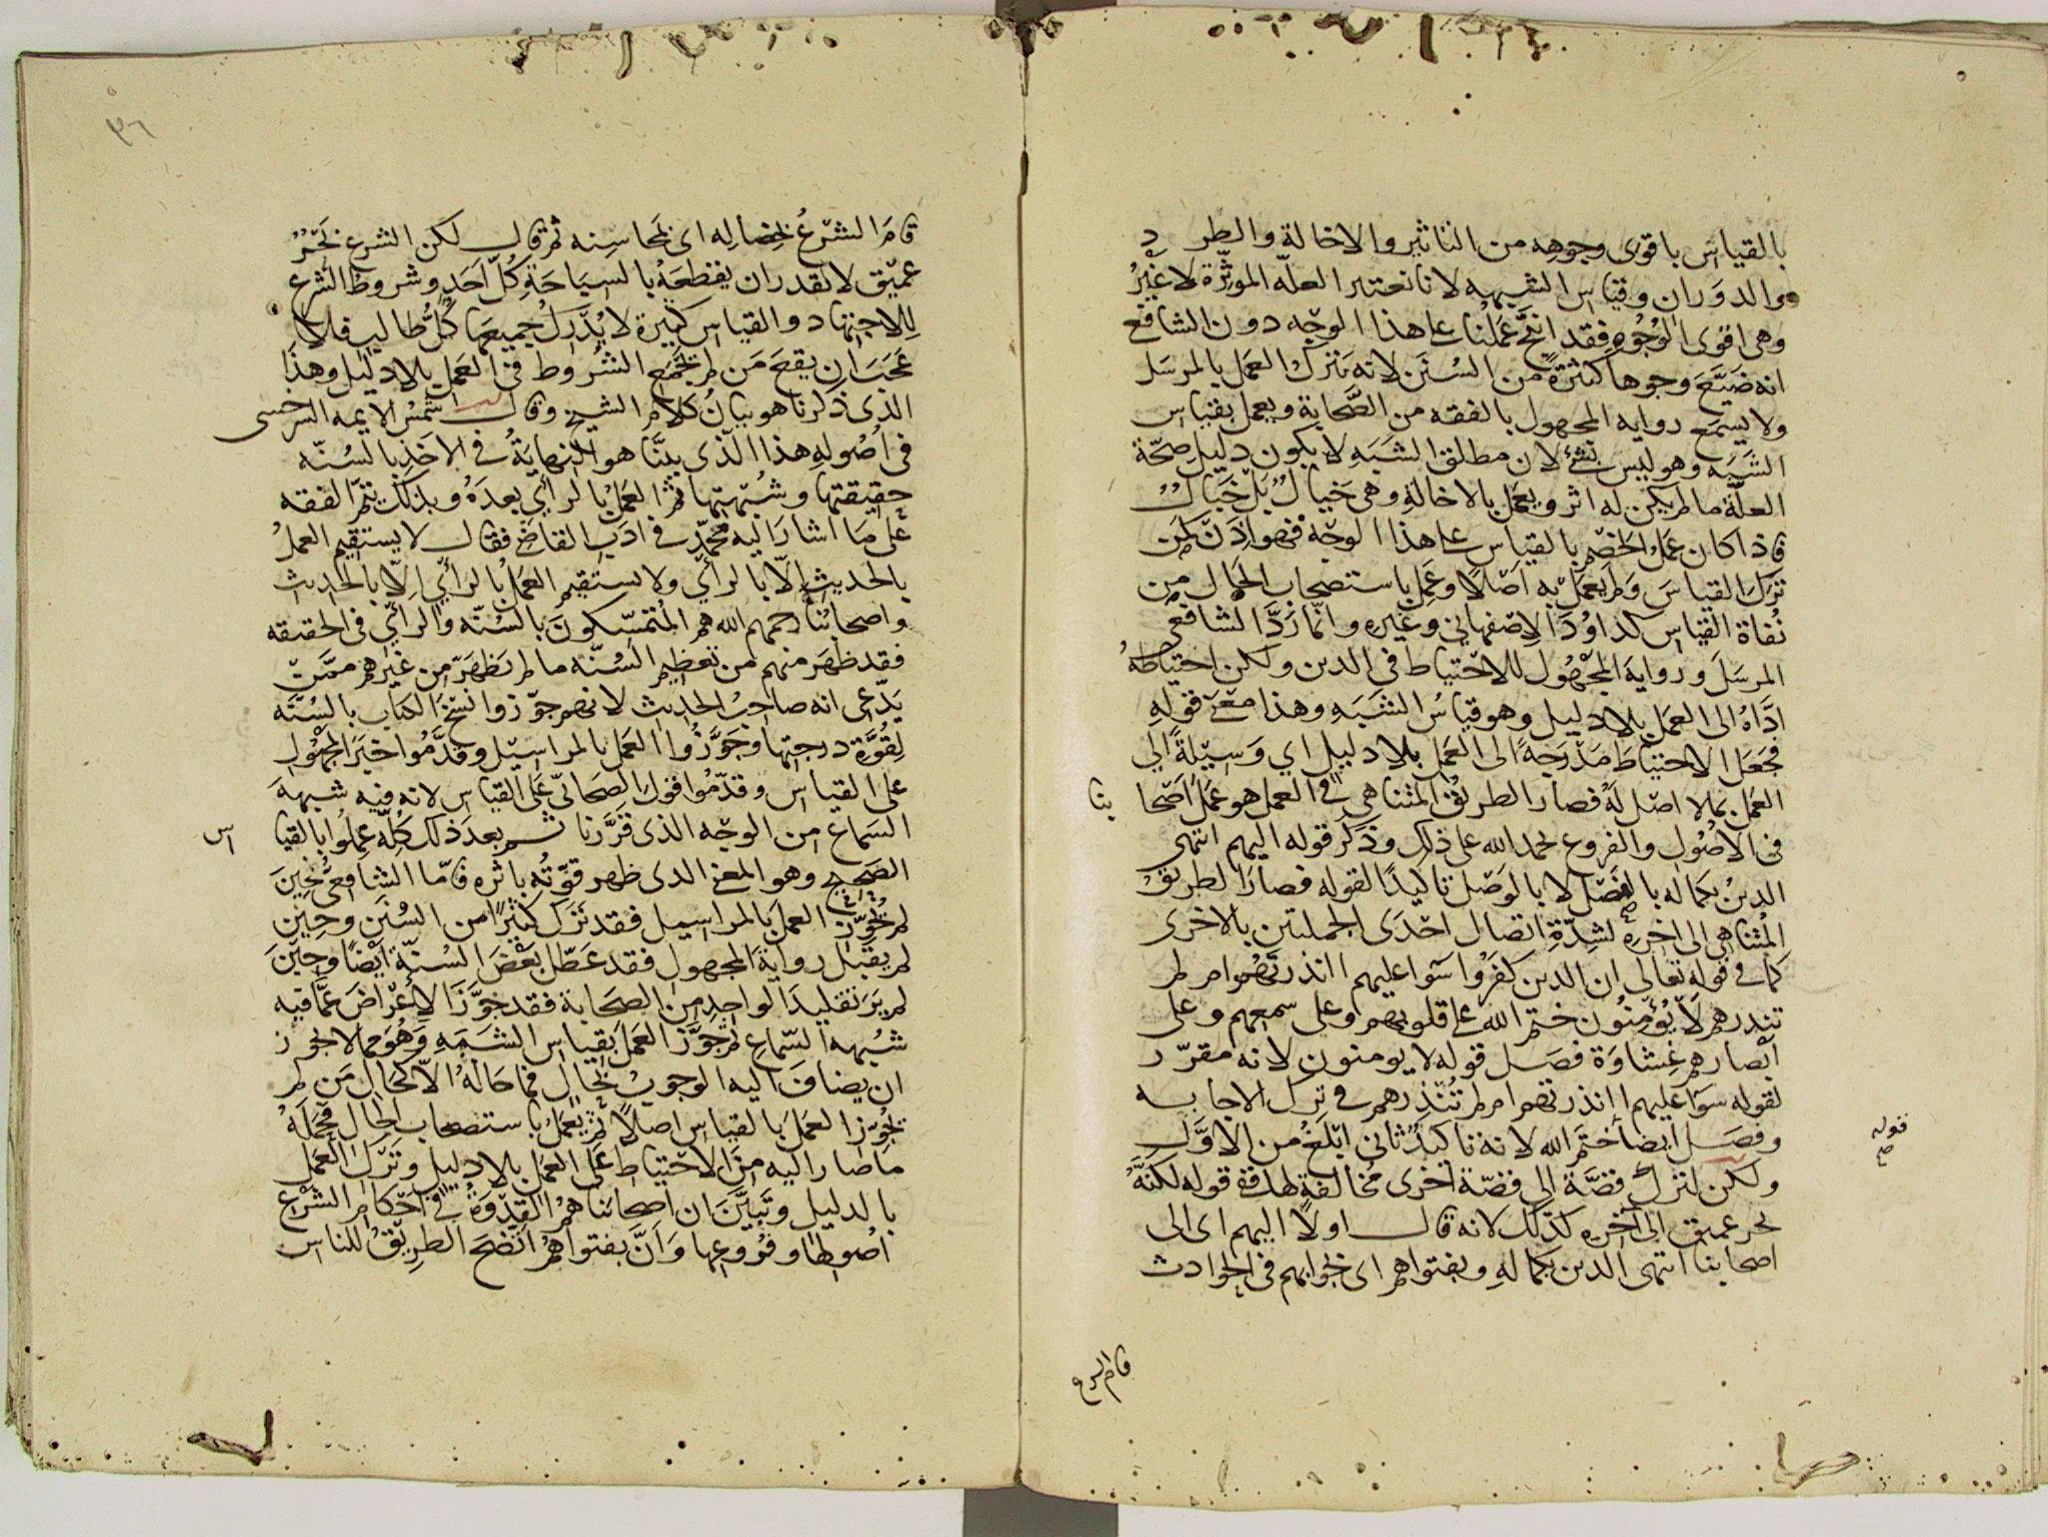 بالقياس باقوى وجوهه من التاثير والاخالة والطرد
والدوران وقياس الشبه لانا نعتبر العلّه الموثّرة لا غيرُ
وهى اقوى الوُجُوهِ فقد اتجَّهَ عمَلُنا على هذا الوجه دون الشافعى
انه ضَيَّعَ وجوها كثيرةً من السُنَن لانه يَترك العمل بالمرسَل
ولا يسمَع روايه المجهول بالفقه من الصَّحابة ويعمل بقياس
الشَبَه وهو ليس بشئ لان مطلق الشَبَهِ لا يكون دليل صحّة
العلّة ما لم يكن له اثر ويعمل بالاخالةِ وهى خَيالٌ بَلْ خَبَالٌ
فاذا كان عمَلُ الخصْمِ بالقياس على هذا الوجْه فهو اِذَنْ كمَن
تركَ القياسَ وَلم يعمَل به اصْلًا وعَمِل باستصحاب الحال من
نُفاة القياس كداوُدَ الاصْفهانى وغيره وانما رَدَّ الشافعى
المرسَلَ ورواية المجْهُول للاحتياط فى الدين ولكن احتياطهُ
ادَّاهُ الى العمَل بلا دليل وهو قياسُ الشَبَهِ وهذا معْنى قولهِ
فجَعَل الاحتياطَ مَدْرَجةً الى العمَل بلا دليل اي وَسيلةً الى
العمَل بما لا اصْل لهُ فصار الطريقُ المُتناهى فى العمل هو عمَلُ اصْحابنا
فى الاصُول والفروع بحمد الله على ذلك وذكَر قوله اليهم انتهى
الدينُ بكماله بالفصْل لا بالوَصْل تاكيدًا لقوله فصار الطريقُ
المُتناهى الى اخرهِ لشِدّةِ اتصال احْدَى الجملتين بالاخرى
كما فى قوله تعالى ان الذين كفَرُوا سَوا عليهم اانذرتهُم ام لم
تنذرهم لا يُؤمِنُون ختم الله على قلوبهم وعلى سمعهم وعلى
اَبصارهم غِشاوَة فصَل قوله لا يومنون لانه مقرّر
لقوله سَوَا عليهم اانذرتهم ام لم تُنْذِرهم فى ترك الاجابه
وفصَل ايضا ختَم الله لانه تاكيدٌ ثانى ابلَغُ من الاوَّل
ولكن لتركِ قصَّة الى قصّة اخرى مُخالفةٍ لها قوله لكنَّهُ
قوله
صح
بحر عميق الى آخرهِ كذلك لانه قال اولًا اليهم اى الى
اصحابنا انتهى الدين بكماله وبفتواهم اى بجوابهم فى الحوادث
قام الشرع
٣٦
قامَ الشرْعُ بخصَالِه اى بمحاسِنه ثم قال لكن الشرع بَحْرٌ
عمِيْق لا يقدر ان يقطعَهُ بالسِبَاحَةِ كُلُّ اَحَدٍ وشروط الشرع
لِلاجتهاد والقياس كثيرة لا يُدْرِك جميعَها كُلُّ طالب فلا
عَجَبَ ان يقعَ مَن لم يجمَع الشُرُوط فى العمَل بلا دليل وهذا
الذى ذكرنا هو بيانُ كلام الشيخ وقال شمسُ الايمه السرخسى
فى اُصُولهِ هذا الّذى بيَّنا هو النهايةُ فى الاخذِ بالسُنّه
حقيقتها وشُبْهتِها ثم العَمَلُ بالرأي بعدَهُ وبذلك يتمّ الفقه
علَى مَا اشارَ اليه محمّدٌ فى ادَب القاضى فقال لا يستقيم العملُ
بالحديث الّا بالرأي ولا يستقيم العمَلُ بالرأيِ الّا بالحديث
واصحابُنا رحمهم الله هم المُتمَسّكونَ بالسُنّه والرأيِ فى الحقيقه
فقد ظهَرَ منهم من تعظيم السُنّه ما لم يَظهَر من غيرهم ممّن
يَدّعى انه صاحِبُ الحديث لانهم جوّزوا نسْخَ الكتاب بالسُنّه
لِقُوَّةِ درجتها وجَوَّزُوا العمَل بالمراسيل وقَدَّمُوا خبَر المجهول
على القياس وقدّمُوا قول الصَحابّى عَلى القياس لانه فيه شبهة
السَماع من الوجْه الذى قرَّرنا ثم بعدَ ذلك كلّه عمِلُوا بالقياس
الصَحِيح وهو المعنى الذى ظهر قوّتُه باثره فامّا الشافعىُّ فحِينَ
لم يُجوّز العمَلَ بالمراسيل فقد تَركَ كثيْرًا من السُنَن وحِيْن
لم يقبَل روايةَ المجهول فقد عَطّل بعْضَ السُنّة ايْضًا وحيْنَ
لم يَرَ تقليدَ الواحِد من الصَحَابة فقد جوّزَ الاِعْراضَ عمَّا فيه
شُبهة السّماعِ ثم جَوَّز العملَ بقياسِ الشَبَهِ وَهُوَ مما لا يجوز
ان يضافَ اليه الوجوبُ بحَالٍ فما حَالُهُ الّا كحَالِ مَن لم
يُجوّز العمَلَ بالقياس اصلًا ثم يَعمَلُ باستصحاب الحال فحَملَهُ
ما صار اليه من الاحْتِياط على العمَل بلا دليل وتَرْك العمَل
بالدليل وتَبيَّنَ ان اصحابنا هُمُ القِدْوَةُ فى احْكام الشَرْع
اُصُولها وفُرُوعِها وَانَّ بفتواهُم اتضَحَ الطريْقُ للناس